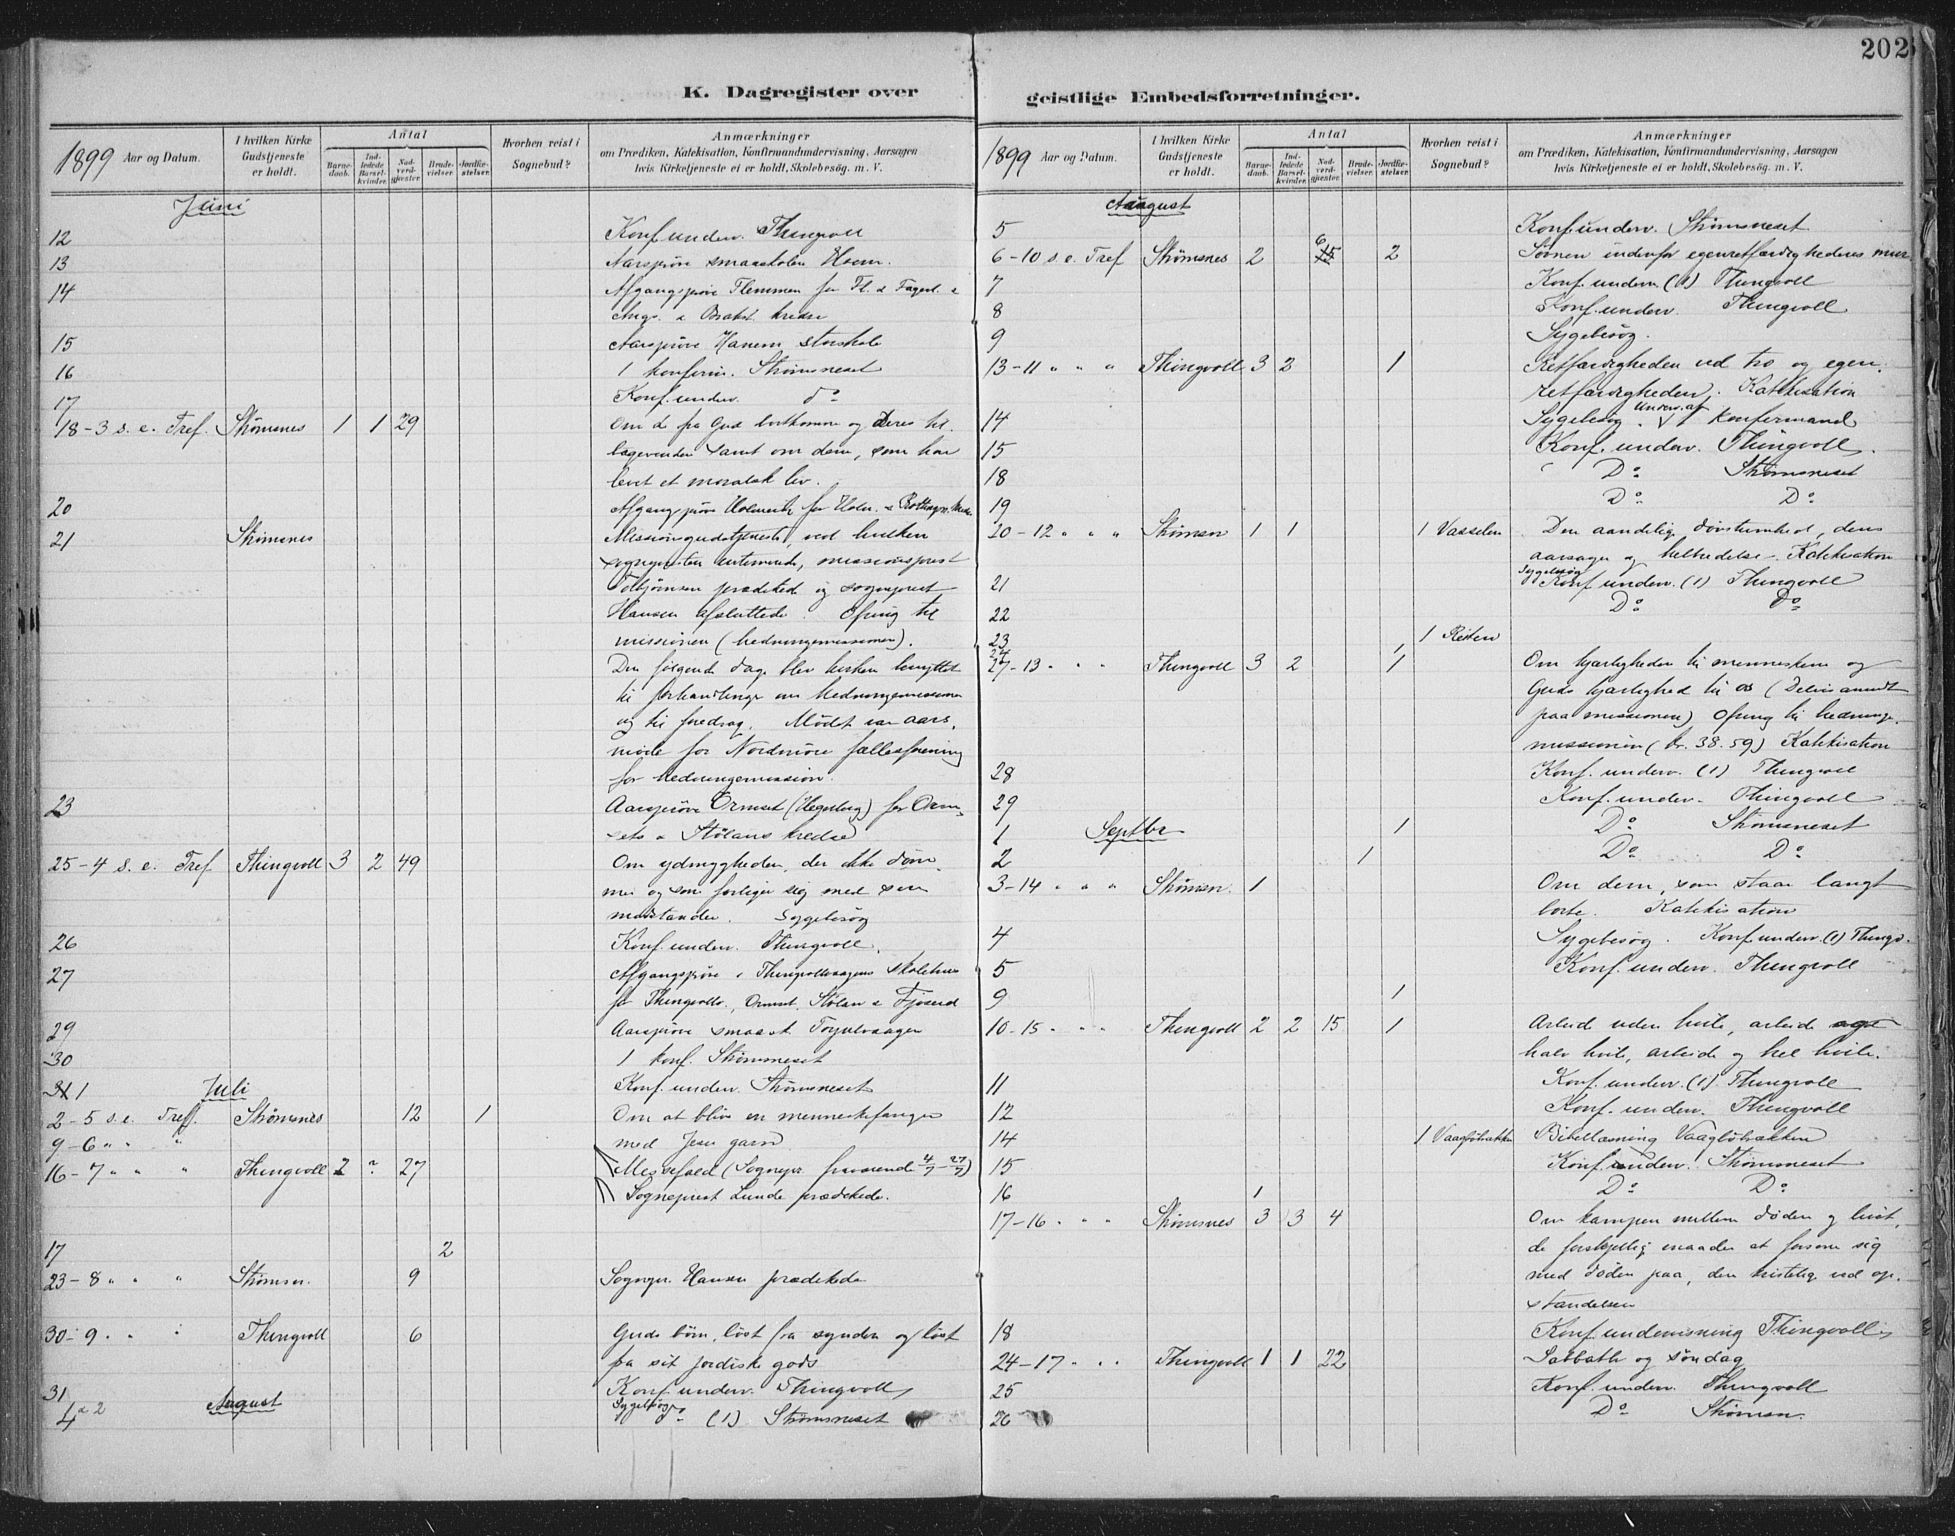 202
K. Dagregister over
geistlige Embedsforretninger.
1899 Aar og Datum.
I hvilken Kirke Gudstjeneste er holdt.
Antal
Barnedaab.
Indledede Barselkvinder.
Nadverdgjester.
Brudevielser.
Jordfæstelser.
Hvorhen reist i Sognebud?
Anmærkninger
om Prædiken, Katekisation, Konfirmandundervisning, Aarsagen
hvis Kirketjeneste ei er holdt, Skolebesøg. m. V.
Juni
12 Konf. underv. Thingvoll
13 Aarsprøve smaaskolen Hoem.
14 Afgangsprøve Flemmen for Fl. & Fagerl. &
Angv. & Bakst. kredse
15 Aarsprøve Hanem storskole
16 1 konfirm. Strømsneset
17 Konf. underv. do
18-3 s. e. Tref. Strømsnes 1 1 29 Om de fra Gud bortkomne og deres til-
bagevenden samt om dem, som har
levet et moralsk lev.
20 Afgangsprøve
21 Strømsnes Missionsgudstjeneste, ved hvilken
sognepresten intimerede, missionsprest
Tolbjørnsen prædiked og sogneprest
Hansen afsluttede. Ofring til
missionen (hedningemissionen).
Den følgende dag blev kirken benyttet
til forhandlinger om hedningemissionen
og til foredrag. Mødet var aars-
møde for Nordmøre fællesforening
for hedningemission.
23 Aarsprøve Ormset (Hegerberg) for Orm-
sets & Stølans kredse
25-4 s. e. Tref Thingvoll 3 2 49 Om ydmygheden, der ikke døm-
mer og som forliger sig med sin
modstander. Sygebesøg
26 Konf. underv. Thingvoll.
27 Afgangsprøve i Thingvollvaagens skolehus
for Thingvollv., Ormset, Stølan & Fjøseid
29 Aarsprøve smaask. Torjulvaagen
30 1 konf. Strømsneset
1 Juli Konf. underv. Strømsneset
2-5 s. e. Tref. Strømsnes 12 1 Om at blive en menneskefanger
med Jesu garn
9-6 " " "
16-7 " " " Thingvoll 2 2 27 Messefald (Sognepr. fraværende 4/7-27/7)
Sogneprest Lunde prædikede.
17 2
23-8 " " " Strømsn. 9 Sognepr. Hansen prædikede
30-9 " " " Thingvoll 6 Guds børn, løst fra synden og løst
fra sit jordiske gods
31 Konf. underv. Thingvoll
4 & 2 August Sygebesøg do (1) Strømsneset
1899 Aar og Datum.
I hvilken Kirke Gudstjeneste er holdt.
Antal
Barnedaab.
Indledede Barselkvinder.
Nadverdgjester.
Brudevielser.
Jordfæstelser.
Hvorhen reist i Sognebud?
Anmærkninger
om Prædiken, Katekisation, Konfirmandundervisning, Aarsagen
hvis Kirketjeneste ei er holdt, Skolebesøg. m. V.
August
5 Konf. underv. Strømsneset
6-10 s. e. Tref Strømsnes 2 6 2 Sønnen indenfor egenretfærdighedens mur
7 Konf. underv. (1) Thingvoll
8 Konf. underv. Thingvoll
9 Sygebesøg.
13-11 " " " Thingvoll 3 2 1 Retfærdigheden ved tro og egen-
retfærdigheden. Katekisation
14 Sygebesøg. Underv. af 1 konfirmand
15 Konf. underv. Thingvoll.
18 Do Strømsneset
19 Do Do
20-12 " " " Strømsn 1 1 1 Vasselen Den aandelige døvstumhed, dens
aarsager og helbredelse. Katekisation
21 Sygebesøg Konf. underv. (1) Thingvoll
22 Do Do
23 1 Reiten
24
27-13 " " Thingvoll 3 2 1 Om kjærligheden til menneskene og
Guds kjærlighed til os (Delvis anvendt
paa missionen) Ofring til hedninge-
missionen (kr. 38.59) Katekisation
28 Konf. underv. (1) Thingvoll
29 Konf. underv. Thingvoll
1 Septbr 1 Do Strømsneset
2 1 Do Do
3-14 " " " Strømsn. 1 Om dem, som staar langt
borte. Katekisation
4 Sygebesøg. Konf. underv. (1) Thingv.
5 Konf. underv. Thingvoll
9 1
10-15 " " " Thingvoll 2 2 15 1 Arbeid uden hvile, arbeide
halv hvile, arbeide og hel hvile.
11 Konf. underv. (1) Thingvoll
12 Konf. underv. Thingvoll
14 1 Vaagbøbakken Bibellæsning Vaagbøbakken
15 Konf. underv. Strømsneset
16 1 Do Do
17-16 " " " Strømsnes 3 3 4 Om kampen mellem døden og livet,
de forskjellige maader at forsone sig
med døden paa, den kristelige ved op-
standelsen
18 Konf. undervisning Thingvoll
24-17 " " " Thingvoll 1 1 22 Sabbath og søndag
25 Konf. underv. Thingvoll
26 Do Strømsn.